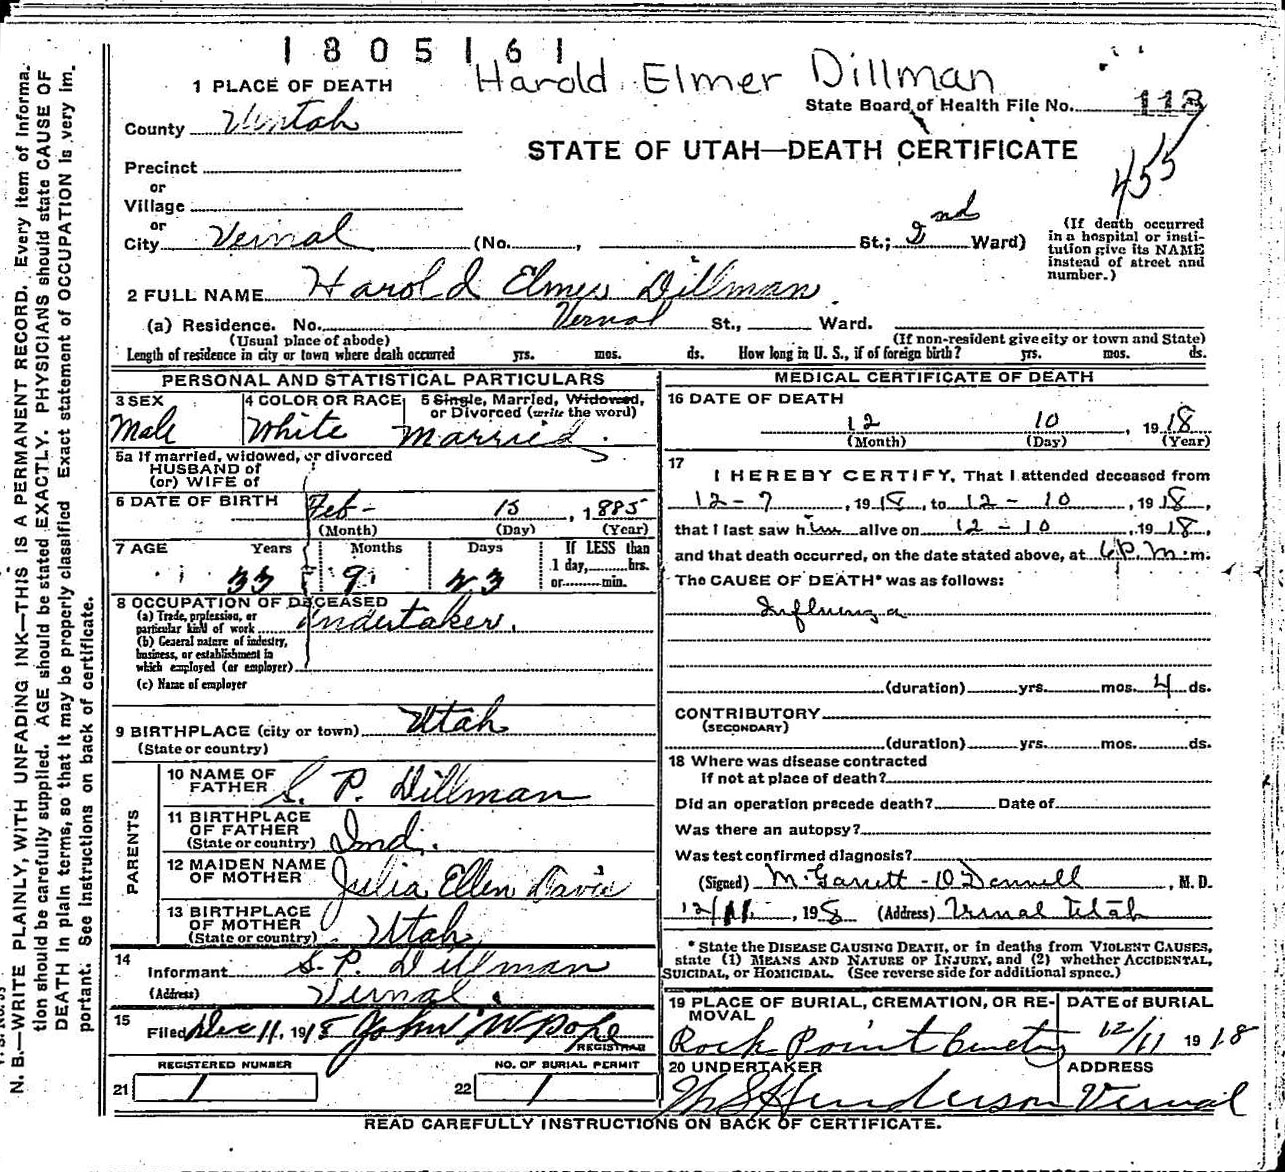 1805161
Harold Elmer Dillman
1 PLACE OF DEATH
State Board of Health File No. 113
455
County Uintah
STATE OF UTAH—DEATH CERTIFICATE
Precinct
or
Village
or
City Vernal (No. , St.; 2nd Ward)
(If death occurred
in a hospital or insti-
tution give its NAME
instead of street and
number.)
2 FULL NAME Harold Elmer Dillman
(a) Residence. No. Vernal St., Ward.
(Usual place of abode) (If non-resident give city or town and State)
Length of residence in city or town where death occurred yrs. mos. ds. How long in U. S., if of foreign birth? yrs. mos. ds.
PERSONAL AND STATISTICAL PARTICULARS
3 SEX
Male
4 COLOR OR RACE
White
5 Single, Married, Widowed,
or Divorced (write the word)
Married
5a If married, widowed, or divorced
HUSBAND of
(or) WIFE of
6 DATE OF BIRTH
Feb- 15, 1885
(Month) (Day) (Year)
7 AGE Years Months Days If LESS than
1 day, hrs.
or min.
33 9 23
8 OCCUPATION OF DECEASED
(a) Trade, profession, or
particular kind of work Undertaker.
(b) General nature of industry,
business, or establishment in
which employed (or employer)
(c) Name of employer
9 BIRTHPLACE (city or town) Utah
(State or country)
PARENTS
10 NAME OF
FATHER S. P. Dillman
11 BIRTHPLACE
OF FATHER
(State or country) Ind.
12 MAIDEN NAME
OF MOTHER Julia Ellen Davis
13 BIRTHPLACE
OF MOTHER
(State or country) Utah
14
Informant S. P. Dillman
(Address) Vernal.
15
Filed Dec 11, 1918 John W Pope
REGISTRAR
REGISTERED NUMBER
21 1
NO. OF BURIAL PERMIT
22 1
MEDICAL CERTIFICATE OF DEATH
16 DATE OF DEATH
12 10, 1918
(Month) (Day) (Year)
17
I HEREBY CERTIFY, That I attended deceased from
12-7, 1918, to 12-10, 1918,
that I last saw him alive on 12-10, 1918,
and that death occurred, on the date stated above, at 6 P.M. m.
The CAUSE OF DEATH* was as follows:
Influenza
(duration) yrs. mos. 4 ds.
CONTRIBUTORY
(SECONDARY)
(duration) yrs. mos. ds.
18 Where was disease contracted
if not at place of death?
Did an operation precede death? Date of
Was there an autopsy?
Was test confirmed diagnosis?
(Signed) M. Garrett-O'Donnell, M. D.
12/11, 1918 (Address) Vernal Utah
*State the DISEASE CAUSING DEATH, or in deaths from VIOLENT CAUSES,
state (1) MEANS AND NATURE OF INJURY, and (2) whether ACCIDENTAL,
SUICIDAL, or HOMICIDAL. (See reverse side for additional space.)
19 PLACE OF BURIAL, CREMATION, OR RE-
MOVAL
Rock Point Cemetery
DATE of BURIAL
12/11 1918
20 UNDERTAKER
Henderson
ADDRESS
Vernal
READ CAREFULLY INSTRUCTIONS ON BACK OF CERTIFICATE.
N. B.—WRITE PLAINLY, WITH UNFADING INK—THIS IS A PERMANENT RECORD. Every item of Informa-
tion should be carefully supplied. AGE should be stated EXACTLY. PHYSICIANS should state CAUSE OF
DEATH in plain terms, so that it may be properly classified Exact statement of OCCUPATION is very im-
portant. See instructions on back of certificate.